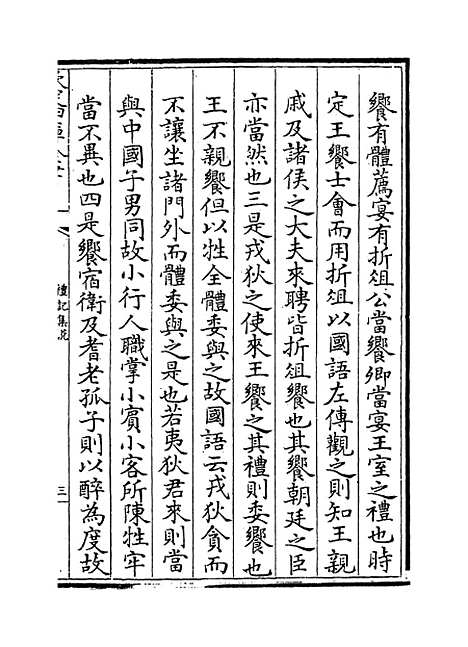 饗有體薦宴有折俎公當饗卿當宴王室之禮也時
定王饗士會而用折俎以國語左傳觀之則知王親
戚及諸侯之大夫來聘皆折俎饗也其饗朝廷之臣
亦當然也三是戎狄之使來王饗之其禮則委饗也
王不親饗但以牲全體委與之故國語云戎狄貪而
不讓坐諸門外而體委與之是也若夷狄君來則當
與中國子男同故小行人職掌小賓小客所陳牲牢
當不異也四是饗宿衛及耆老孤子則以醉為度故
禮記集說
三